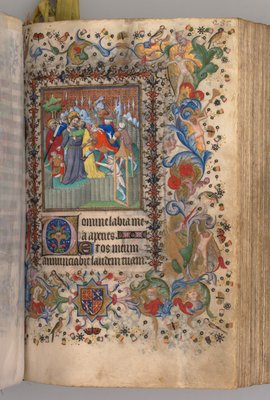 Domine labia me
a aperies.
Et os meum
annunciabit laudem tuam.